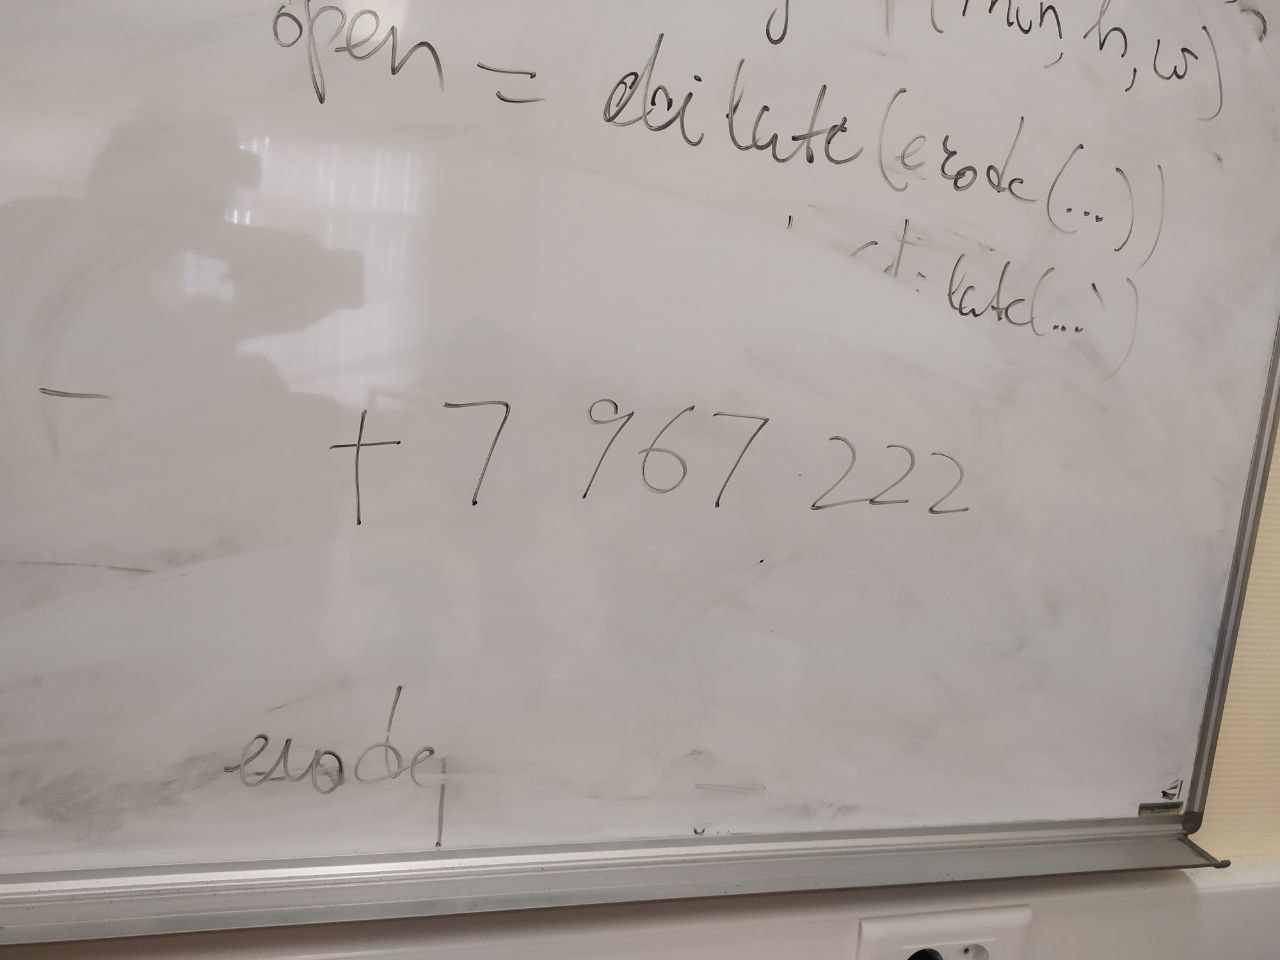 (min, h, w)
open = dilate(erode(...))
late(...)
+7 967 222
erode